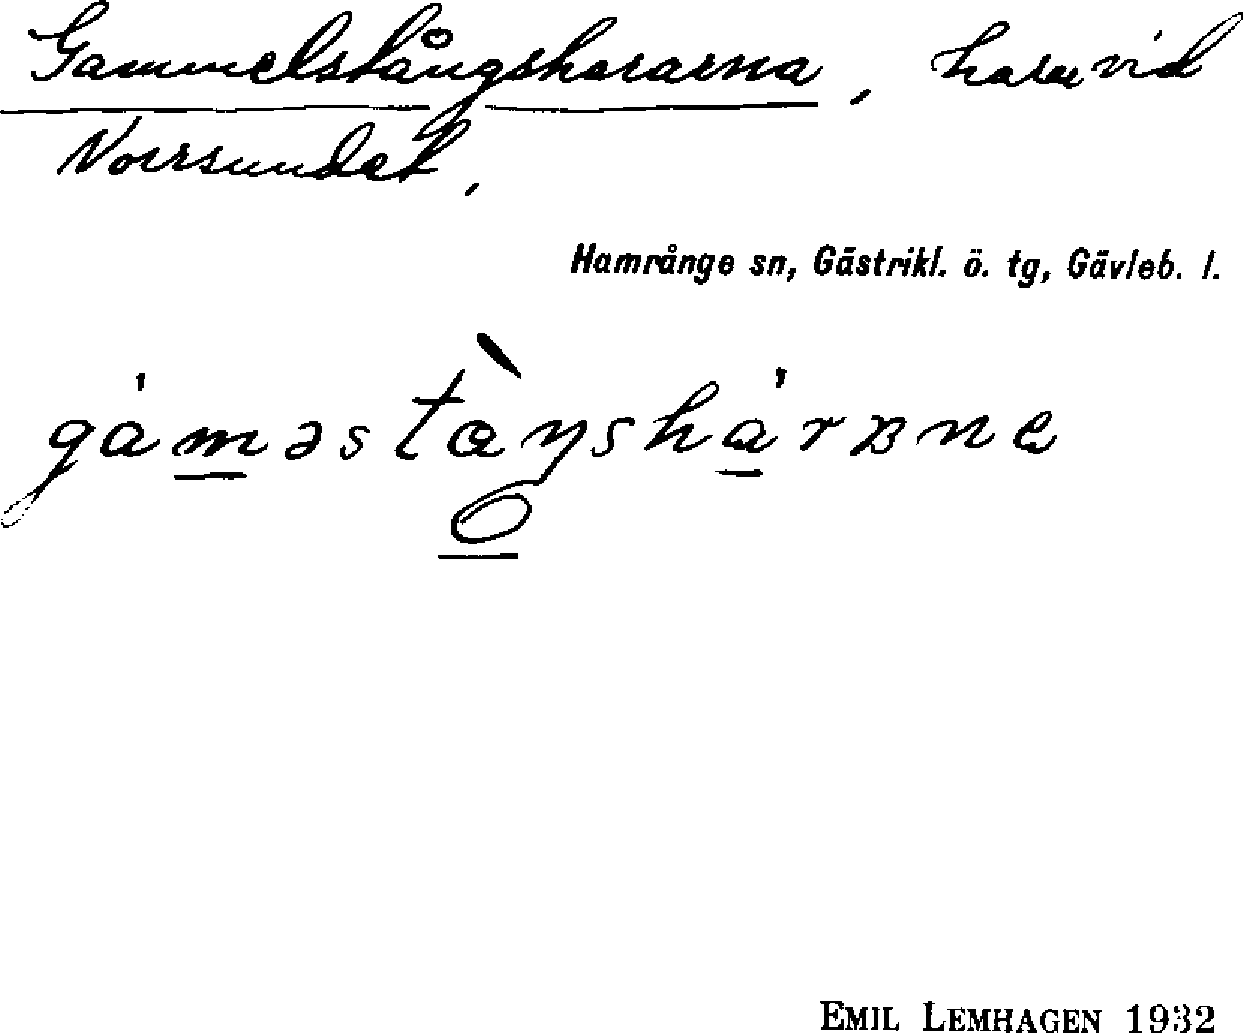 Gammelstångshararna, harar vid
Norrsundet,
Hamrånge sn, Gästrikl. ö. tg, Gävleb. l.
gàməstàŋshárɐna
EMIL LEMHAGEN 1932